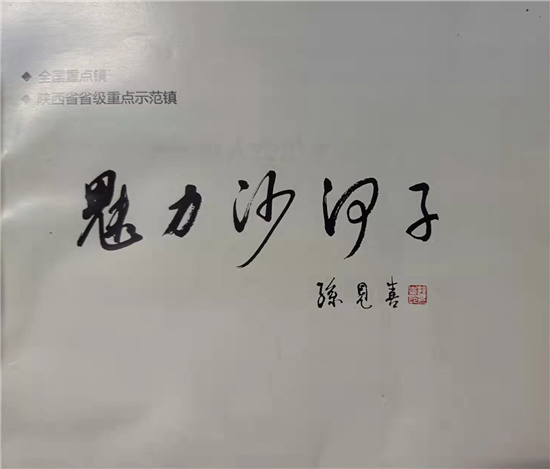 ◆ 全国重点镇
◆ 陕西省省级重点示范镇
魅力沙河子
孫見喜